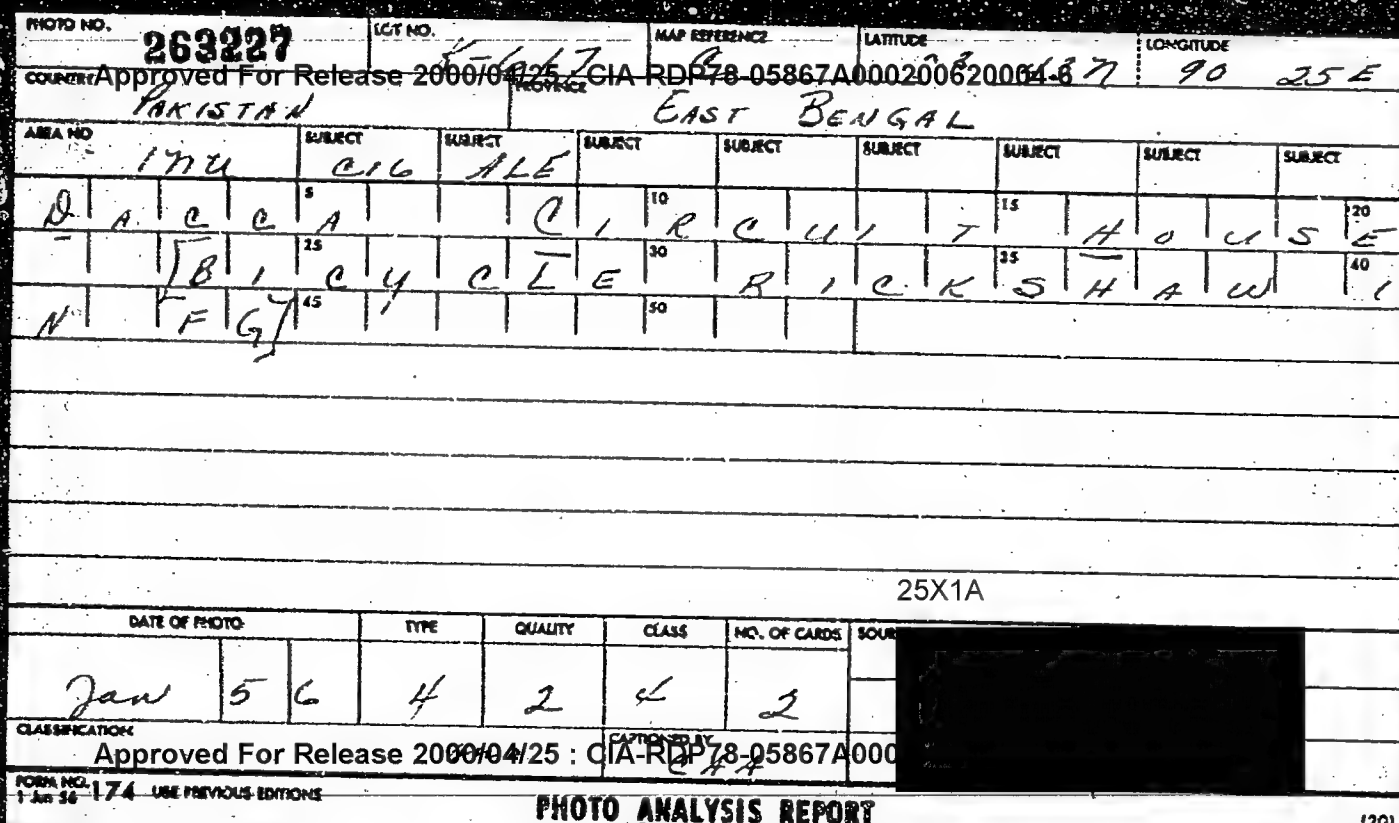 PHOTO NO. 263227 LOT NO. MAP REFERENCE LATITUDE LONGITUDE 90 25 E
COUNTRY Approved For Release 2000/04/25 : CIA-RDP78-05867A000200620004-6
PAKISTAN PROVINCE EAST BENGAL
AREA NO SUBJECT SUBJECT SUBJECT SUBJECT SUBJECT SUBJECT SUBJECT SUBJECT
CIG ALE
DACCA CIRCUIT HOUSE
5 10 15 20
[BICYCLE RICKSHAW I
25 30 35 40
N FG]
45 50
25X1A
DATE OF PHOTO TYPE QUALITY CLASS NO. OF CARDS
Jan 5 6 4 2 2
CLASSIFICATION CAPTIONED BY
Approved For Release 2000/04/25 : CIA-RDP78-05867A000
FORM NO. 174 USE PREVIOUS EDITIONS
1 Jun 56
PHOTO ANALYSIS REPORT (20)